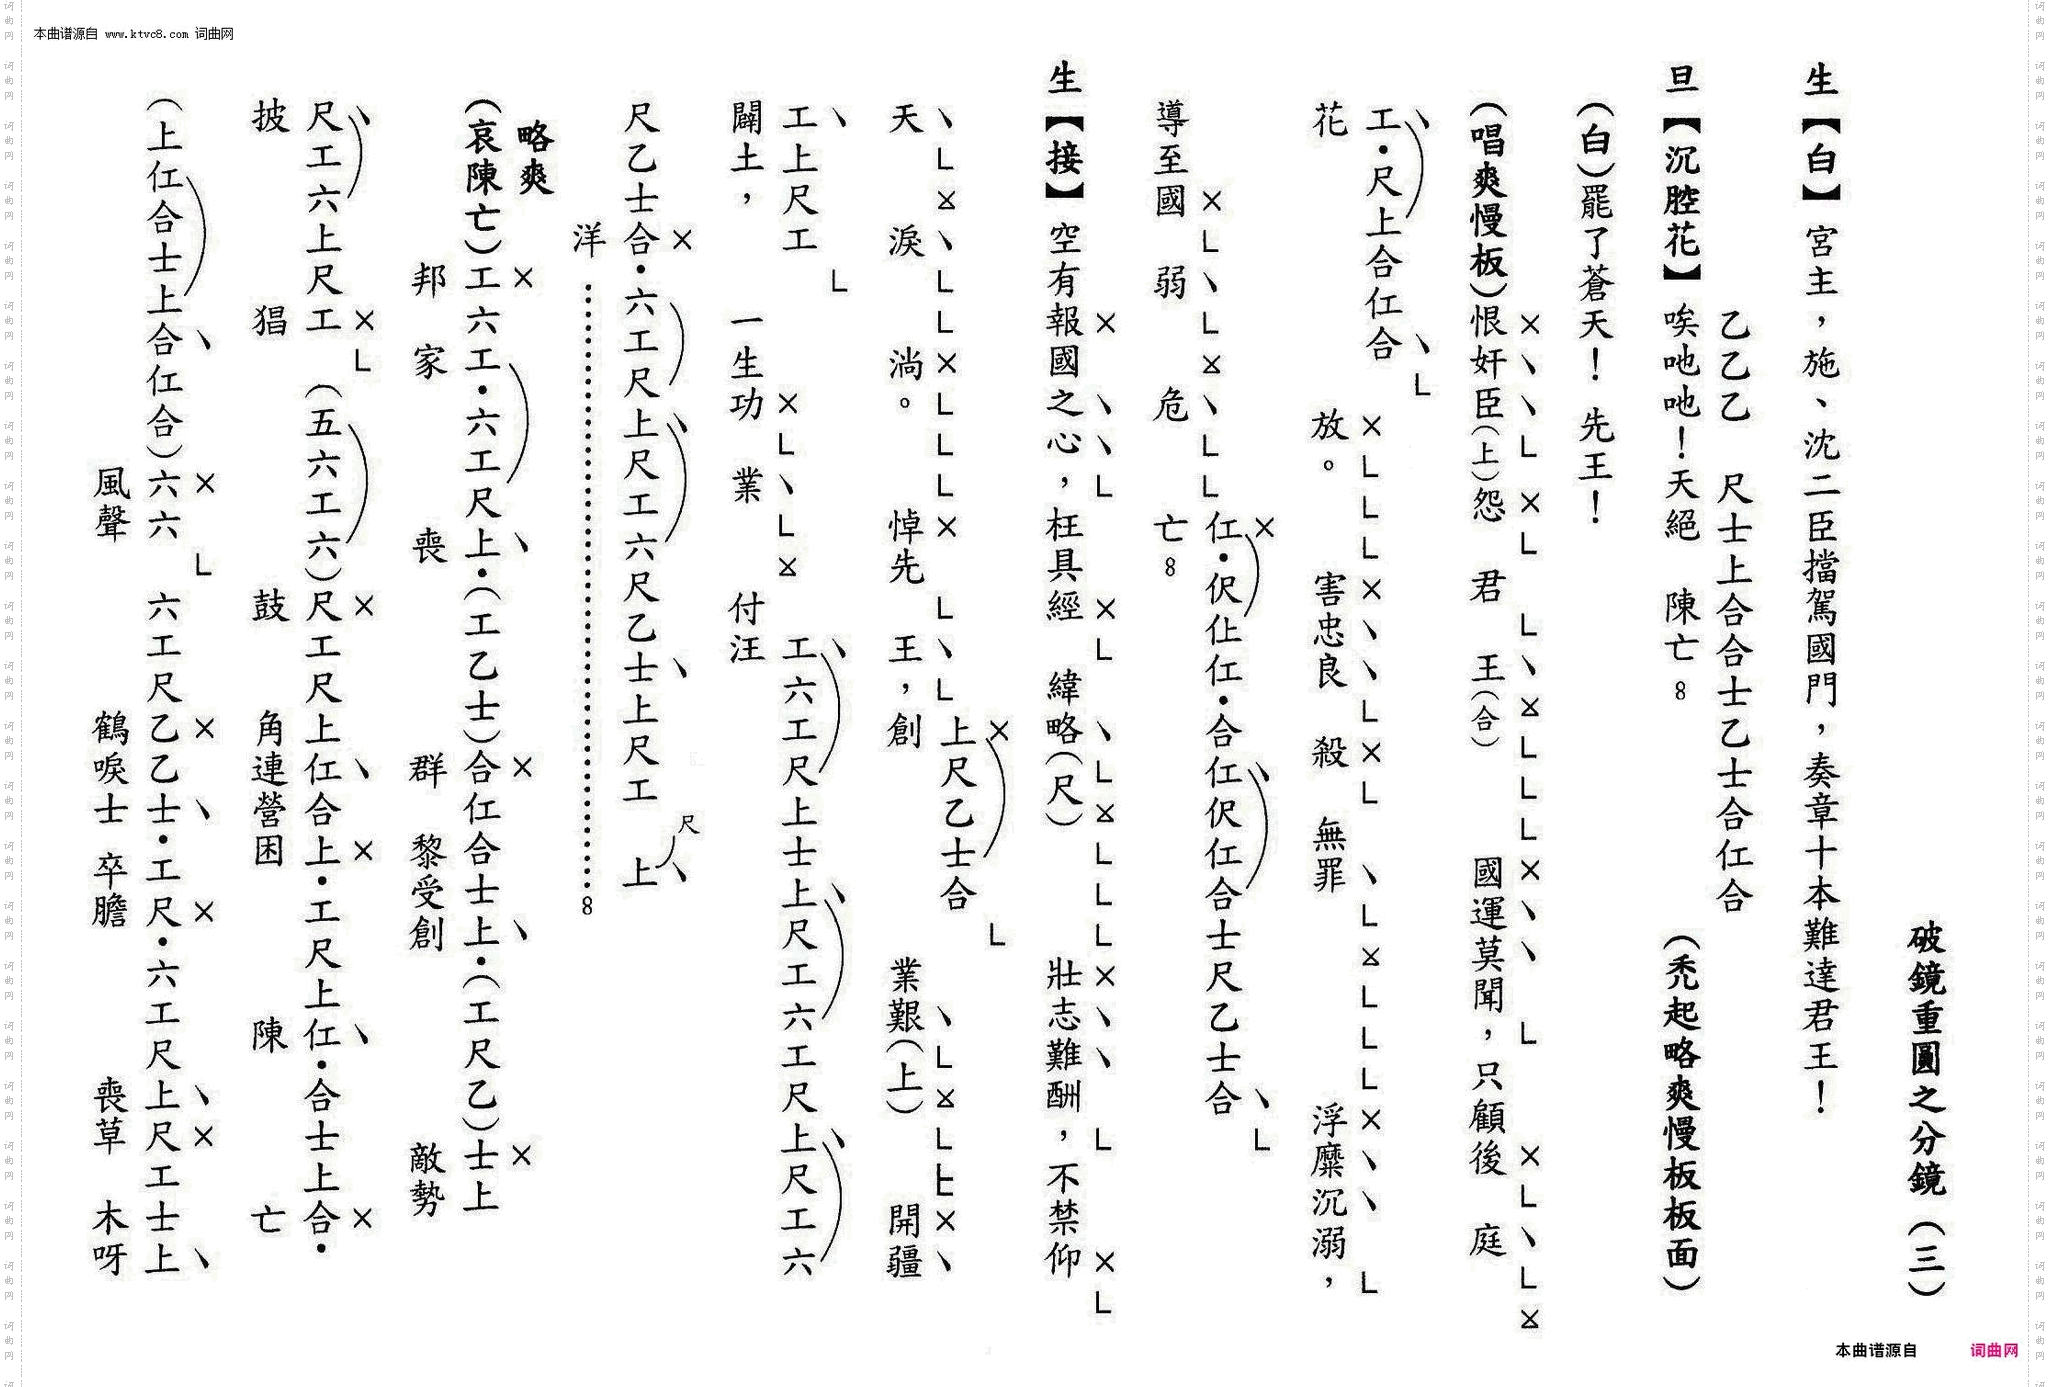 本曲谱源自 www.ktvc8.com 词曲网
破鏡重圓之分鏡（三）
生【白】宮主，施、沈二臣擋駕國門，奏章十本難達君王！
乙乙乙 尺士上合合士乙士合仜合
旦【沉腔花】唉吔吔！天絕 陳亡。。（禿起略爽慢板板面）
（白）罷了蒼天！先王！
（唱爽慢板）恨奸臣（上）怨 君 王（合） 國運莫聞，只顧後 庭
工．尺上合仜合
花 放。 害忠良 殺 無罪 浮糜沉溺，
仜．伬仩仜．合仜伬仜合士尺乙士合
導至國 弱 危 亡。。
生【接】空有報國之心，枉具經 緯略（尺） 壯志難酬，不禁仰
上尺乙士合
天 淚 淌。 悼先 王，創 業艱（上） 開疆
工上尺工 工六工尺上士上尺工六工尺上尺工六
闢土， 一生功 業 付汪
尺乙士合．六工尺上尺工六尺乙士上尺工 尺上
洋………………。。
略爽
（哀陳亡）工六工．六工尺上．（工乙士）合仜合士上．（工尺乙）士上
邦 家 喪 群 黎受創 敵勢
尺工六上尺工（五六工六）尺工尺上仜合上．工尺上仜．合士上合．
披 猖 鼓 角連營困 陳 亡
（上仜合士上合仜合）六六 六工尺乙乙士．工尺．六工尺上尺工士上
風聲 鶴唳士 卒膽 喪草 木呀
本曲谱源自 词曲网